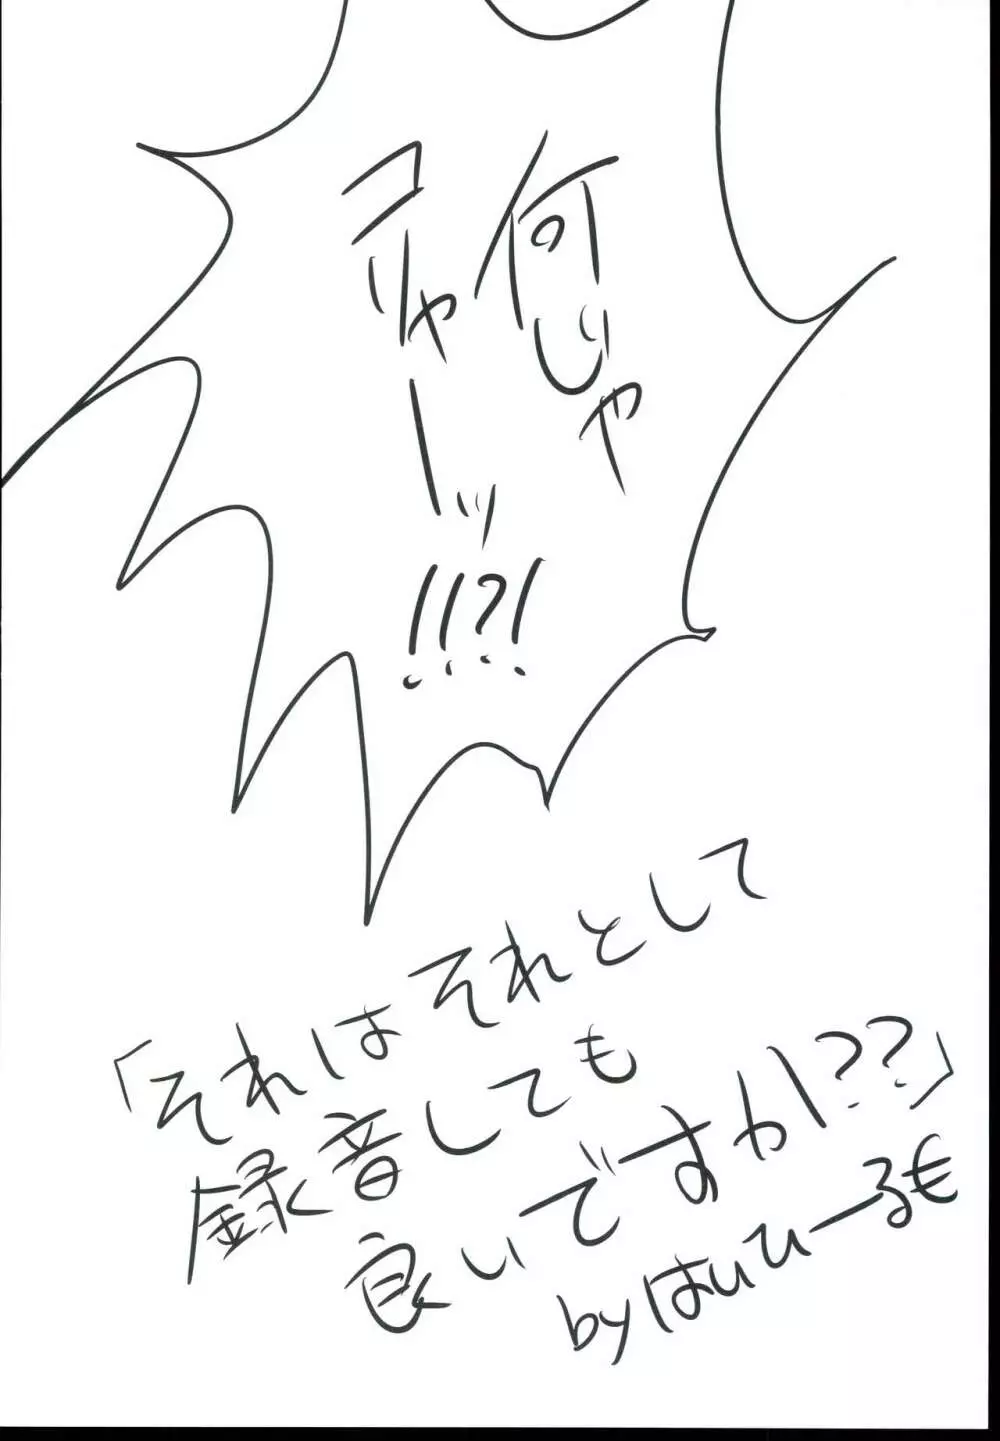 何じゃ
コリャーッ
!!?!
「それはそれとして
録音しても
良いですか???」
byはいひーる€